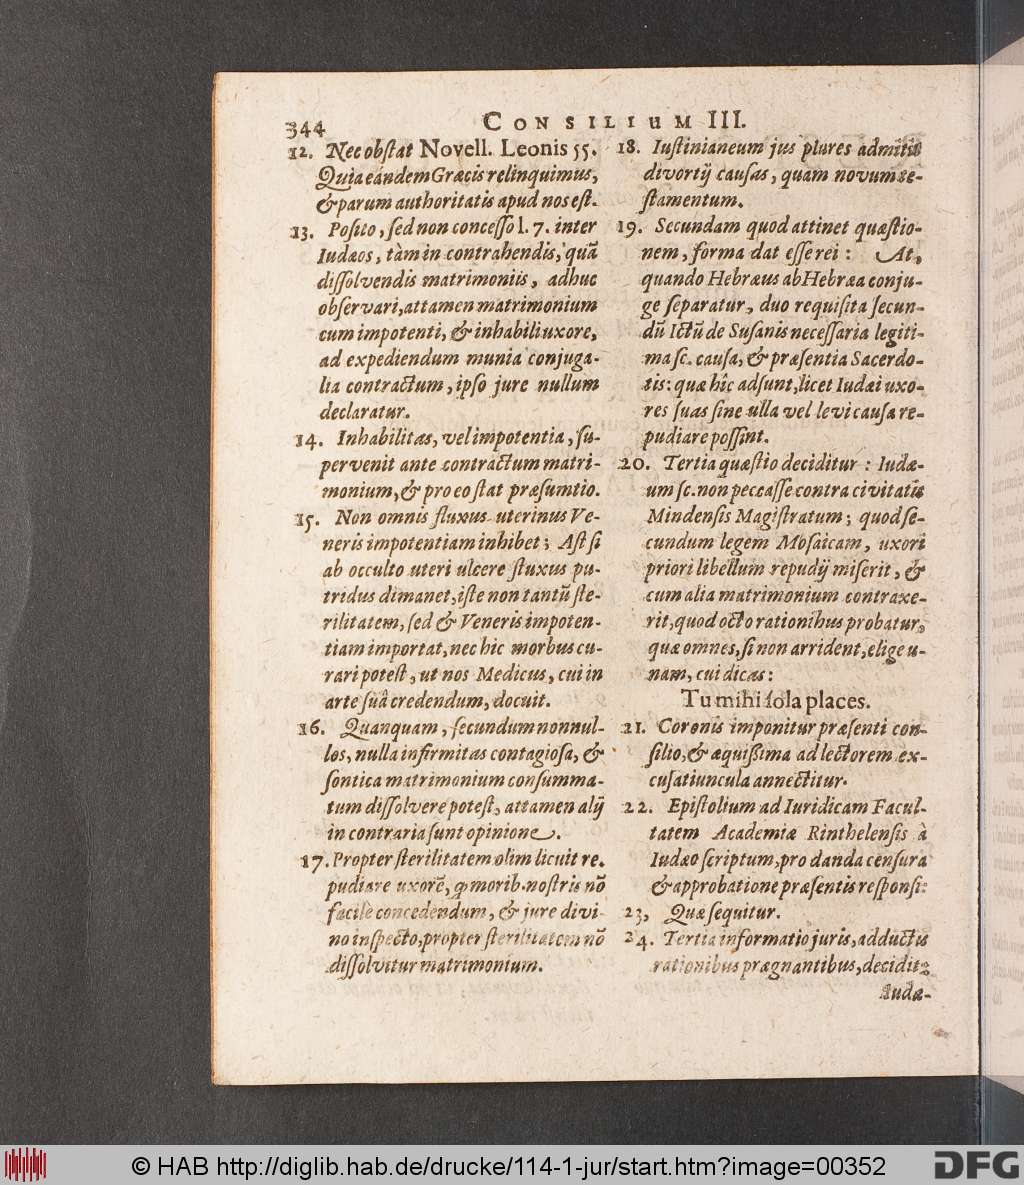 344
CONSILIUM III.
12. Nec obſtat Novell. Leonis 55.
Quia eandem Græcis relinquimus,
& parum authoritatis apud nos eſt.
13. Poſito, ſed non conceſſo l. 7. inter
Iudæos, tàm in contrahendis, quã
diſſolvendis matrimoniis, adhuc
obſervari, attamen matrimonium
cum impotenti, & inhabili uxore,
ad expediendum munia conjuga-
lia contractum, ipſo jure nullum
declaratur.
14. Inhabilitas, vel impotentia, ſu-
pervenit ante contractum matri-
monium, & pro eo ſtat præſumtio.
15. Non omnis fluxus uterinus Ve-
neris impotentiam inhibet; Aſt ſi
ab occulto uteri ulcere fluxus pu-
tridus dimanet, iſte non tantũ ſte-
rilitatem, ſed & Veneris impoten-
tiam importat, nec hic morbus cu-
rari poteſt, ut nos Medicus, cui in
arte ſuâ credendum, docuit.
16. Quanquam, ſecundum nonnul-
los, nulla infirmitas contagioſa, &
ſontica matrimonium conſumma-
tum diſſolvere poteſt, attamen alij
in contraria ſunt opinione.
17. Propter ſterilitatem olim licuit re-
pudiare uxorẽ, ꝙ morib. noſtris nõ
facilè concedendum, & jure divi-
no inſpecto, propter ſterilitatem nõ
diſſolvitur matrimonium.
18. Iuſtinianeum jus plures admitit
divortij cauſas, quam novum te-
ſtamentum.
19. Secundam quod attinet quæſtio-
nem, forma dat eſſe rei: At,
quando Hebræus ab Hebræa conju-
ge ſeparatur, duo requiſita ſecun-
dũ Ictũ de Suſanis neceſſaria legiti-
ma ſc. cauſa, & præſentia Sacerdo-
tis: quæ hîc adſunt, licet Iudæi uxo-
res ſuas ſine ulla vel levi cauſa re-
pudiare poſſint.
20. Tertia quæſtio deciditur: Iudæ-
um ſc. non peccaſſe contra civitatis
Mindenſis Magiſtratum; quod ſe-
cundum legem Moſaicam, uxori
priori libellum repudij miſerit, &
cum alia matrimonium contraxe-
rit, quod octo rationibus probatur,
quæ omnes, ſi non arrident, elige u-
nam, cui dicas:
Tu mihi ſola places.
21. Coronis imponitur præſenti con-
ſilio, & æquißima ad lectorem ex-
cuſatiuncula annectitur.
22. Epiſtolium ad Iuridicam Facul-
tatem Academiæ Rinthelenſis à
Iudæo ſcriptum, pro danda cenſura
& approbatione præſentis reſponſi:
23, Quæ ſequitur.
24. Tertia informatio juris, adductis
rationibus prægnantibus, decidit:
Iudæ-
© HAB http://diglib.hab.de/drucke/114-1-jur/start.htm?image=00352
DFG